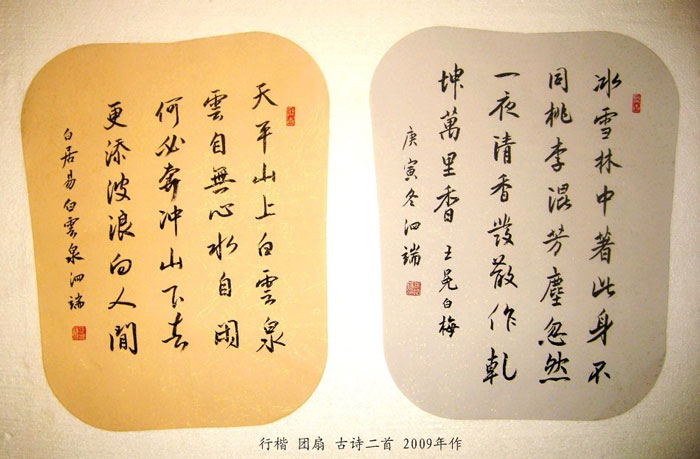 冰雪林中著此身不
同桃李混芳塵忽然
一夜清香發散作乾
坤萬里香 王冕白梅
庚寅冬泗端
天平山上白雲泉
雲自無心水自閑
何必奔冲山下去
更添波浪向人間
白居易白雲泉泗端
行楷 团扇 古诗二首 2009年作